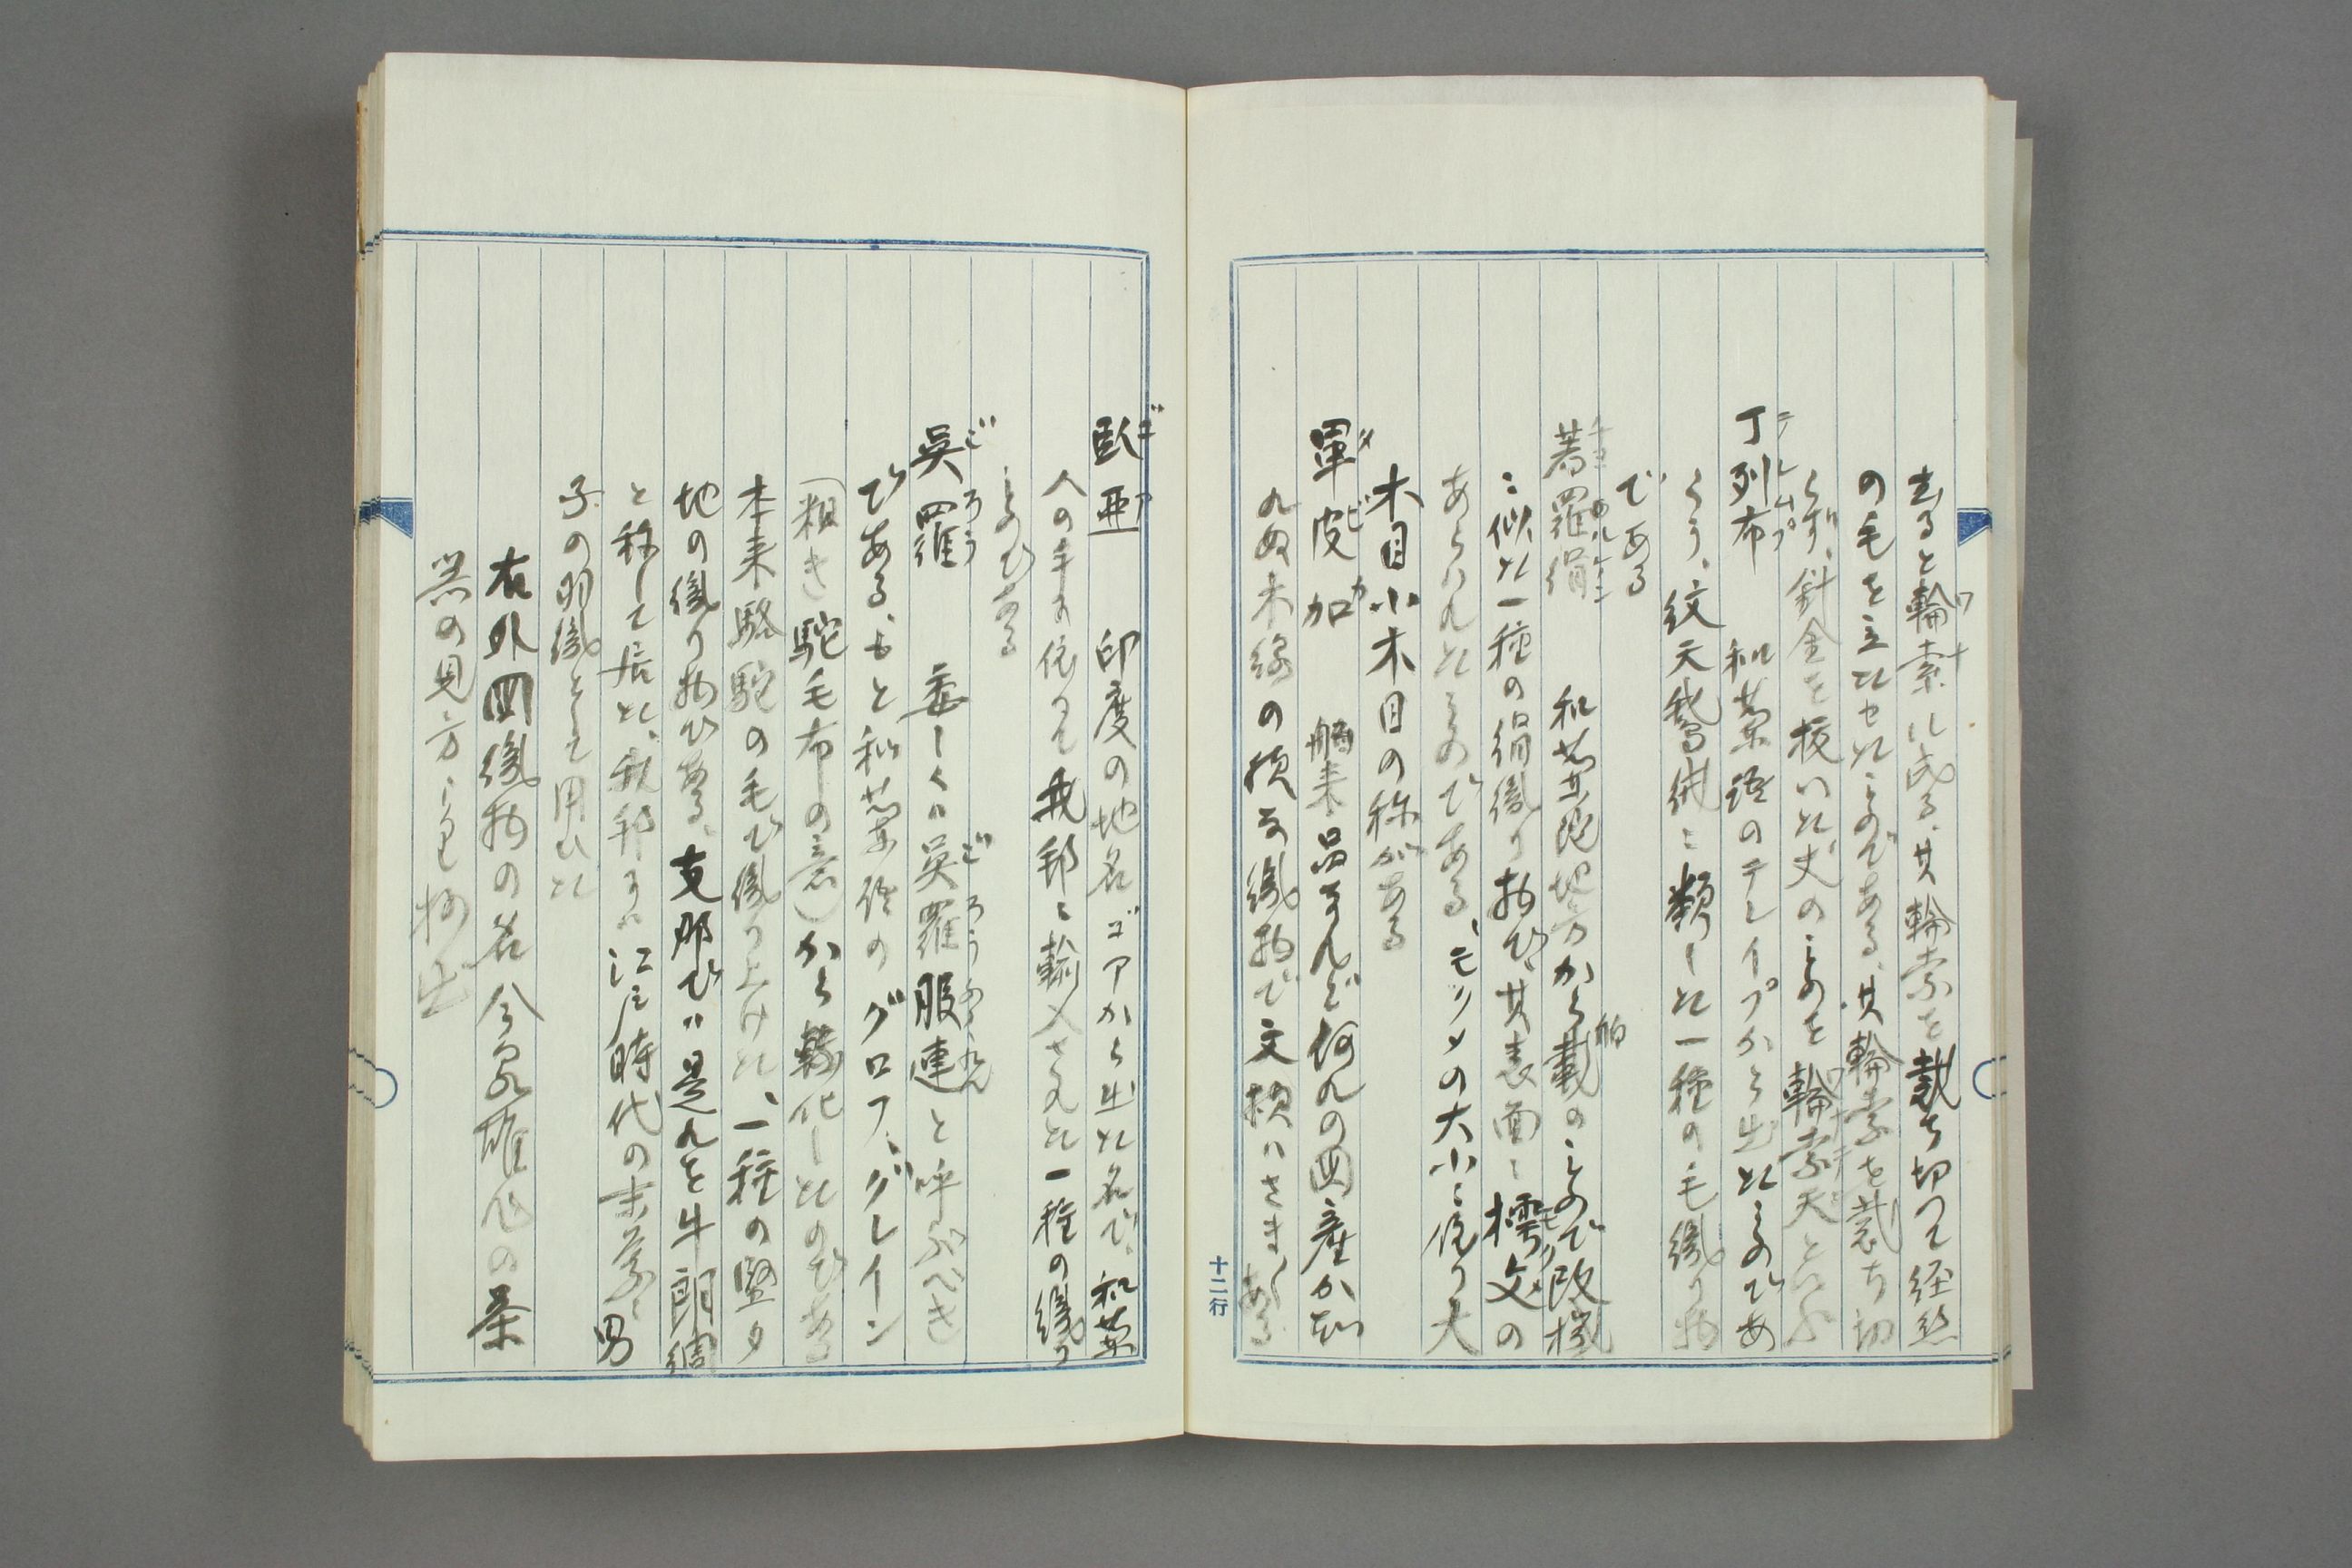 去ると輪索に成る、其輪索を截ち切つて経糸
の毛を立たせたものである、其輪索を截ち切
らず、針金を抜いた丈のものを輪索天といふ
丁列布 和蘭語のテレイプから出たものであ
らう、紋天鵞絨に類した一種の毛織り物
である
著羅絹 和蘭陀地方から舶載のもので改機
に似た一種の絹織り物で、其表面に樗文の
あらはれたものである、モクメの大小に依り大
木目小木目の称がある
軍皮加 舶来品なれど何れの国産か知
れぬ木綿の類な織物で文様はさま〴〵ある
十二行
臥亜 印度の地名ゴアから出た名で、和蘭
人の手に依つて我邦に輸入された一種の織り
ものである
呉羅 委しくは呉羅服連と呼ぶべき
である、もと和蘭語のグロフ、グレイン
(粗き駝毛布の意)から転化したのである
本来駱駝の毛で織り上げた、一種の堅夕
地の織り物である、支那では是れを牛郎綢
と称して居た、我邦では江戸時代の末葉に男
子の羽織として用ひた
右外国織物の名 今泉雄作の茶
器の見方より抄出